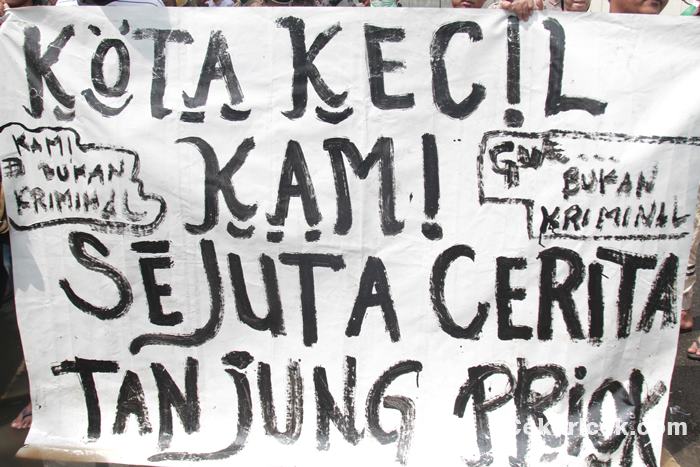 KOTA KECIL
KAMI
KAMI
BUKAN
KRIMINAL
GUE...
BUKAN
KRIMINAL
SEJUTA CERITA
TANJUNG PRIOK
cekricek.com